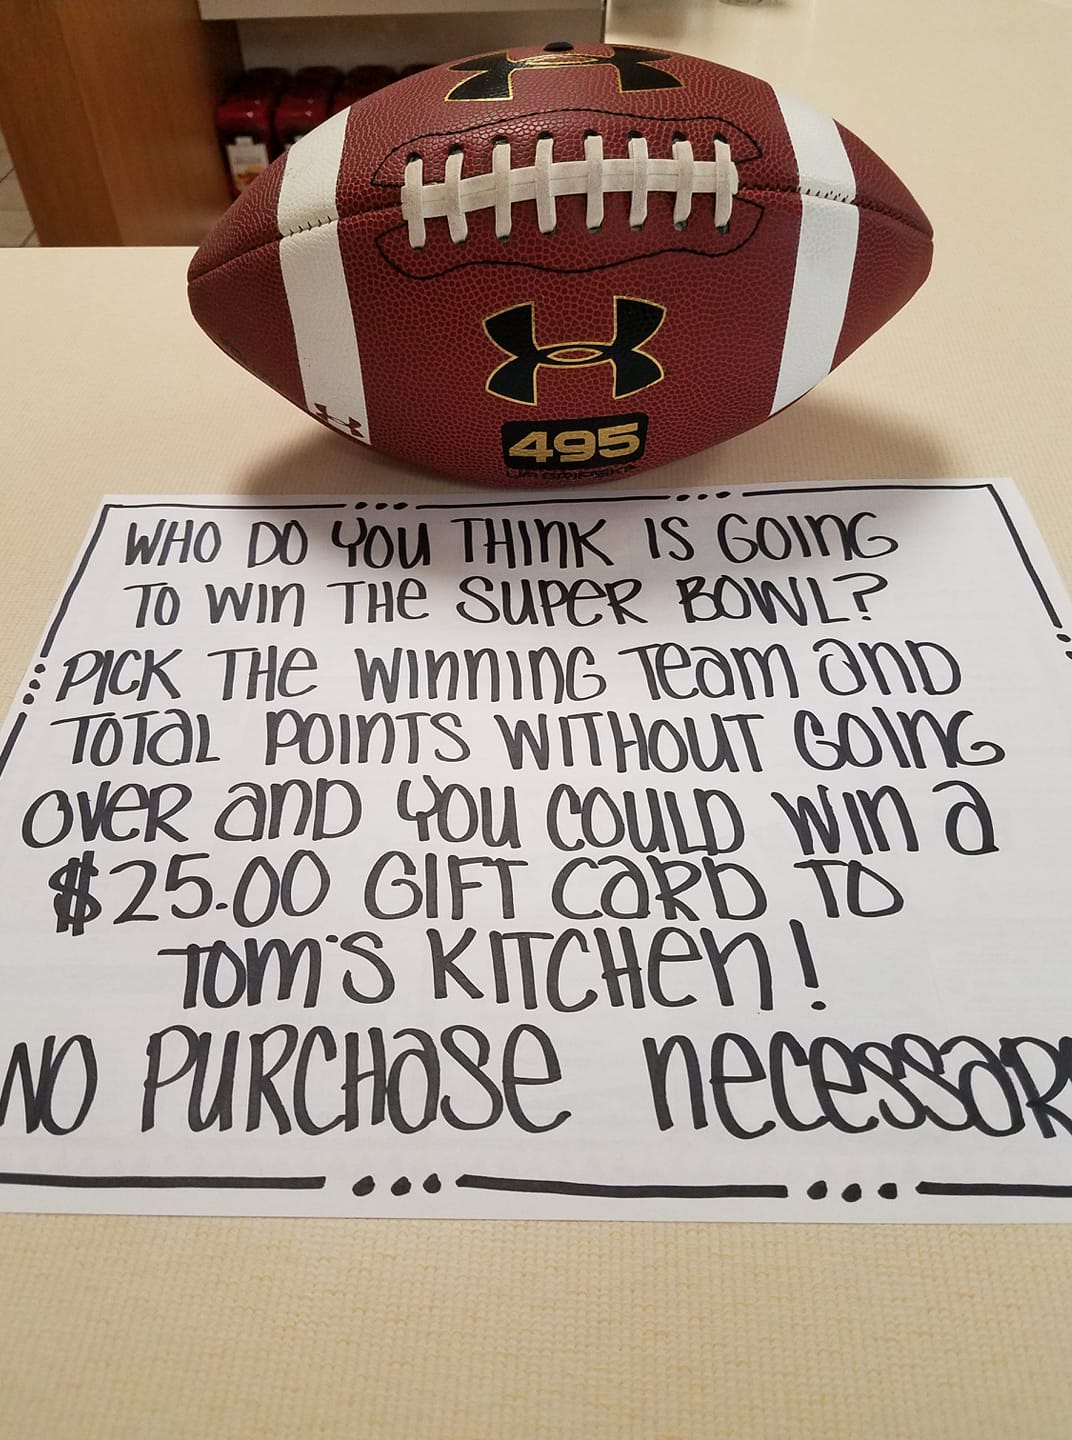 495
WHO DO YOU THINK IS GOING
TO WIN THE SUPER BOWL?
PICK THE WINNING TEAM AND
TOTAL POINTS WITHOUT GOING
OVER AND YOU COULD WIN A
$25.00 GIFT CARD TO
TOM'S KITCHEN!
NO PURCHASE NECESSAR